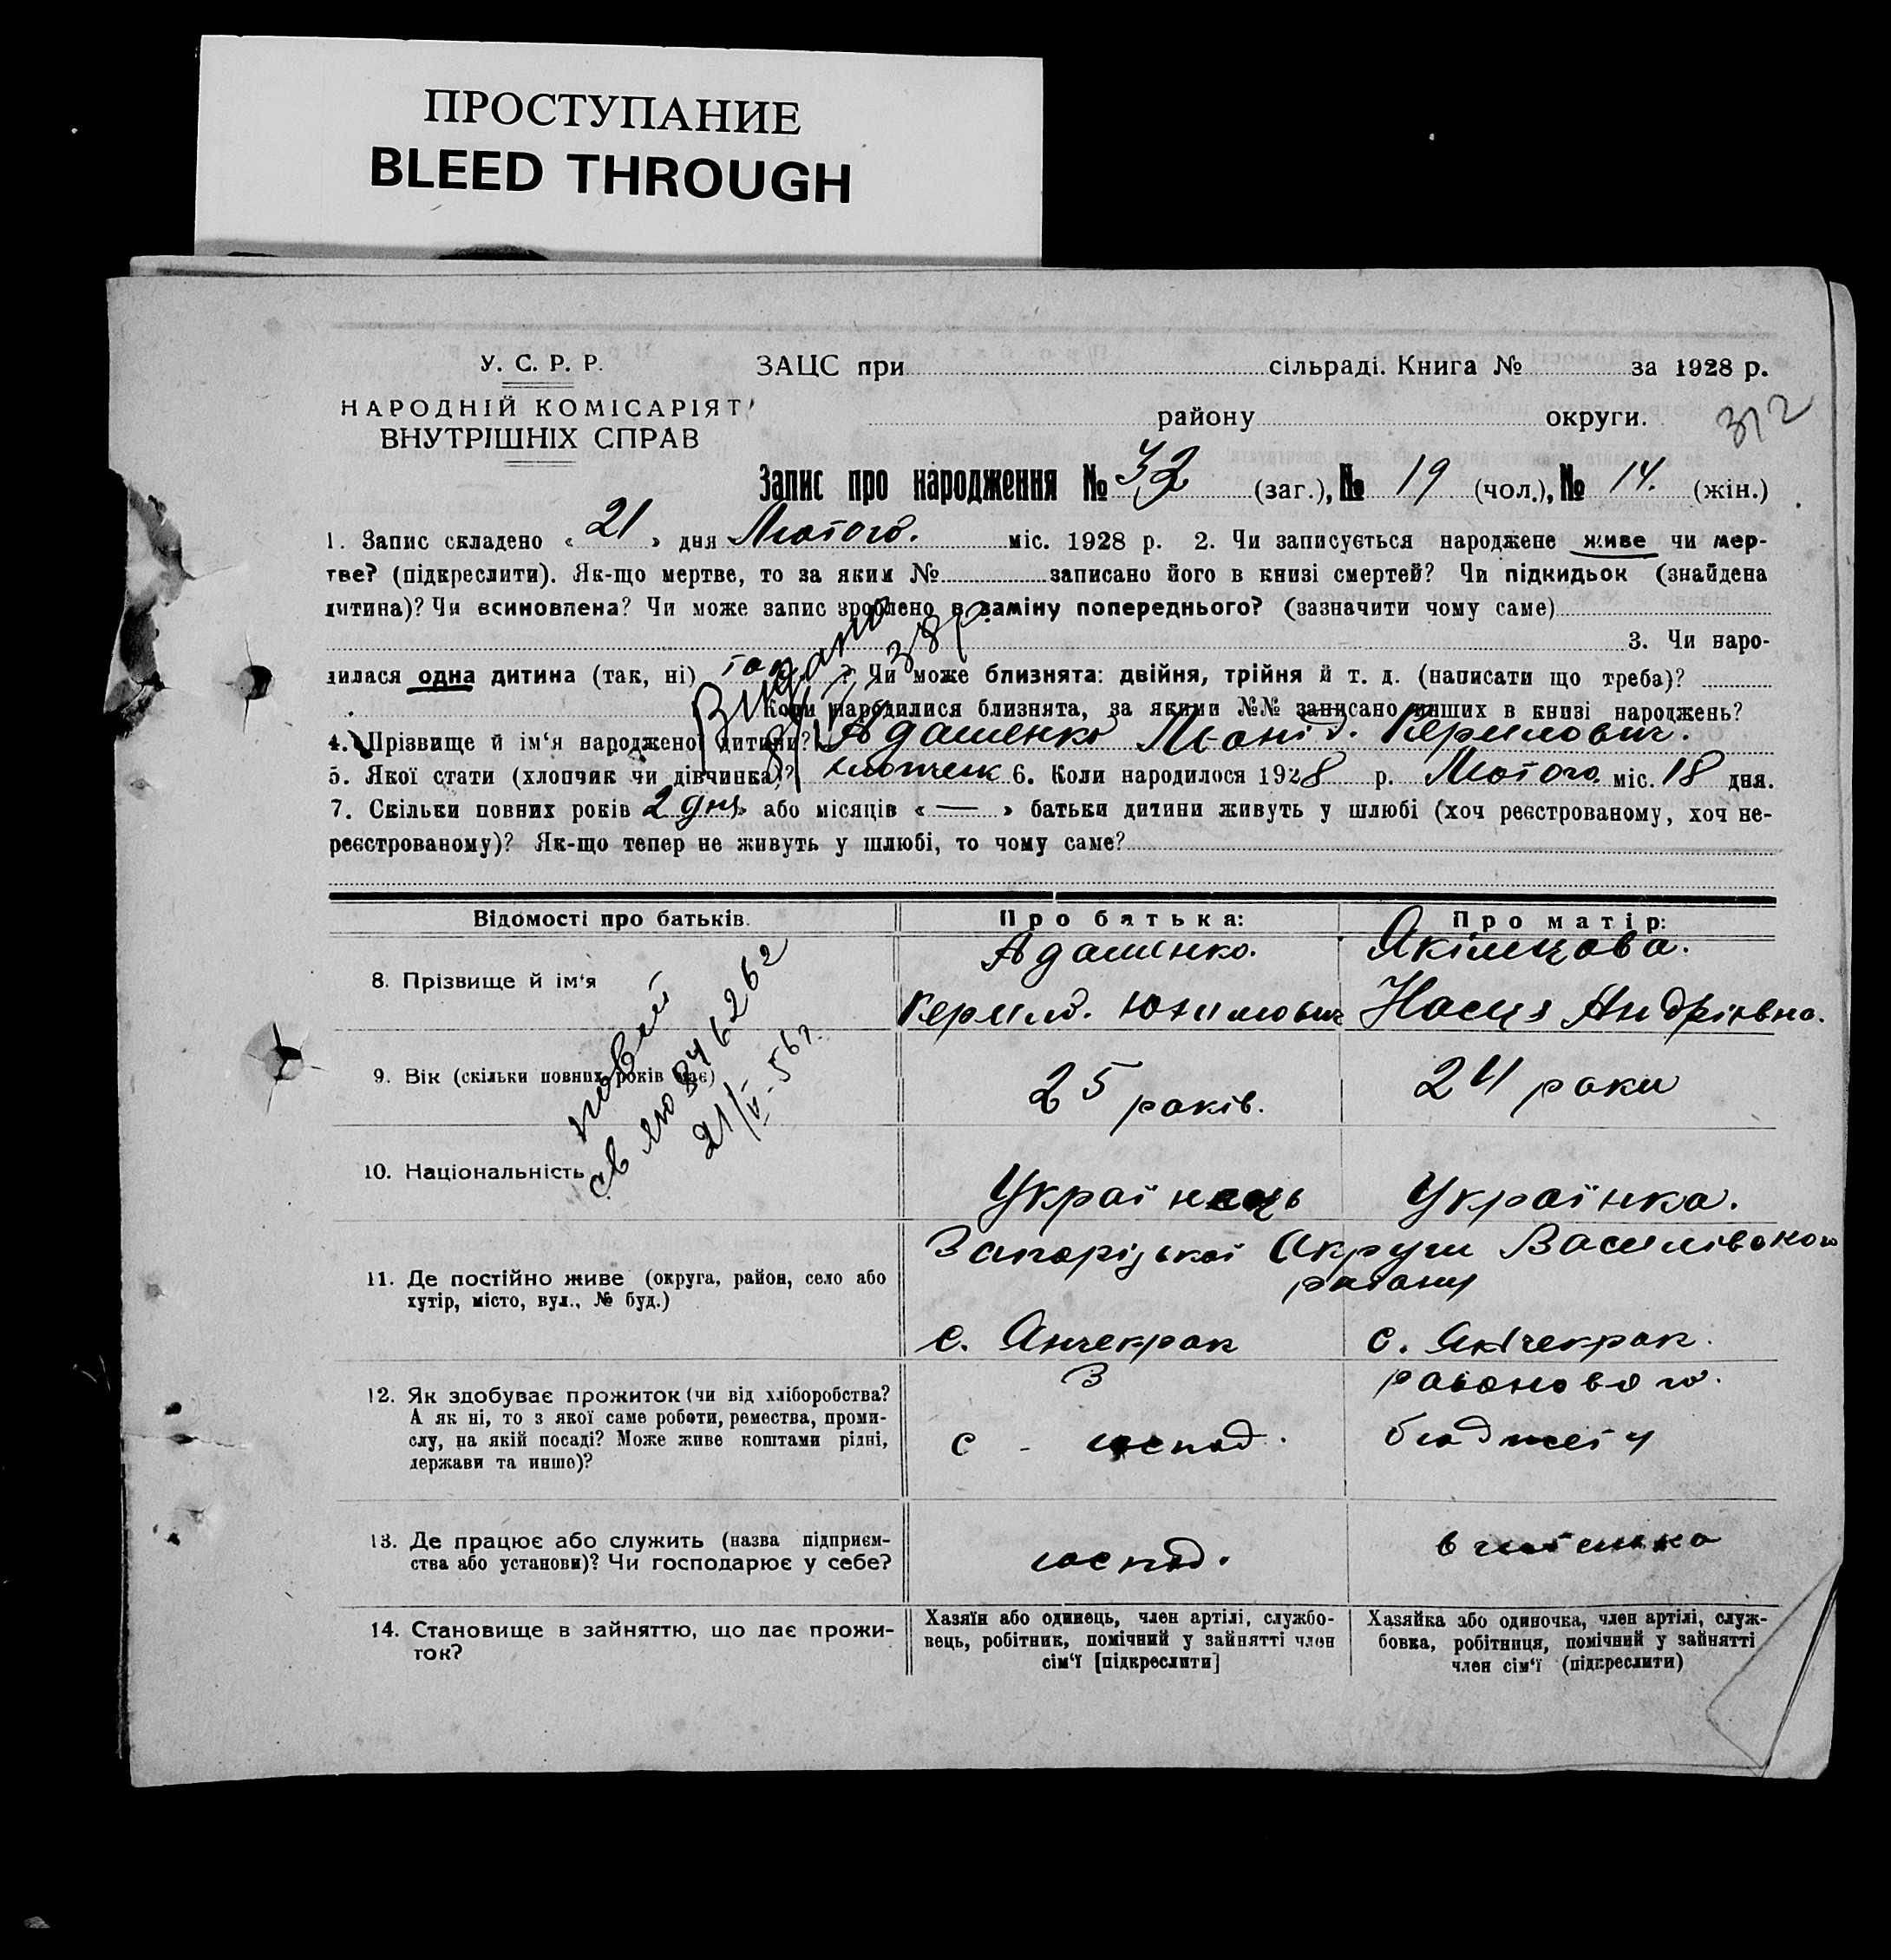 ПРОСТУПАНИЕ
BLEED THROUGH
У. С. Р. Р.
НАРОДНІЙ КОМІСАРІЯТ
ВНУТРІШНІХ СПРАВ
ЗАЦС при сільраді. Книга № за 1928 р.
району округи.
312
Запис про народження № 32 (заг.), № 19 (чол.), № 14. (жін.)
1. Запис складено « 21 » дня Лютого. міс. 1928 р. 2. Чи записується народжене живе чи мер-
тве? (підкреслити). Як-що мертве, то за яким № записано його в книзі смертей? Чи підкидьок (знайдена
дитина)? Чи всиновлена? Чи може запис зроблено в заміну попереднього? (зазначити чому саме)
3. Чи наро-
дилася одна дитина (так, ні) так ? Чи може близнята: двійня, трійня й т. д. (написати що треба)?
Коли народилися близнята, за якими №№ записано инших в книзі народжень?
4. Прізвище й ім'я народженої дитини? Адаменко Леонід. Керилович.
5. Якої стати (хлопчик чи дівчинка)? хлопчик 6. Коли народилося 1928 р. Лютого міс. 18 дня.
7. Скільки повних років « 2 дня » або місяців « — » батьки дитини живуть у шлюбі (хоч реєстрованому, хоч не-
реєстрованому)? Як-що тепер не живуть у шлюбі, то чому саме?
Видано
38р.
Відомості про батьків.
Про батька:
Про матір:
8. Прізвище й ім'я
Адаменко.
Керило. Юхимович
Якімцова.
Насця Андріївна.
9. Вік (скільки повних років має)
25 років.
24 роки
повий
св ЯЮ 846262
21/V-56г.
10. Національність
Українець
Українка.
11. Де постійно живе (округа, район, село або
хутір, місто, вул., № буд.)
Запорізької Округи Василівського
району
с. Янчекрак
с. Янчекрак.
12. Як здобуває прожиток (чи від хліборобства?
А як ні, то з якої саме роботи, ремества, проми-
слу, на якій посаді? Може живе коштами рідні,
держави та инше)?
З
с - господ.
районового.
бюджету
13. Де працює або служить (назва підприєм-
ства або установи)? Чи господарює у себе?
господ.
вчителька
14. Становище в зайняттю, що дає прожи-
ток?
Хазяїн або одинець, член артілі, службо-
вець, робітник, помічний у зайнятті член
сім'ї [підкреслити]
Хазяйка або одиночка, член артілі, служ-
бовка, робітниця, помічний у зайнятті
член сім'ї (підкреслити)